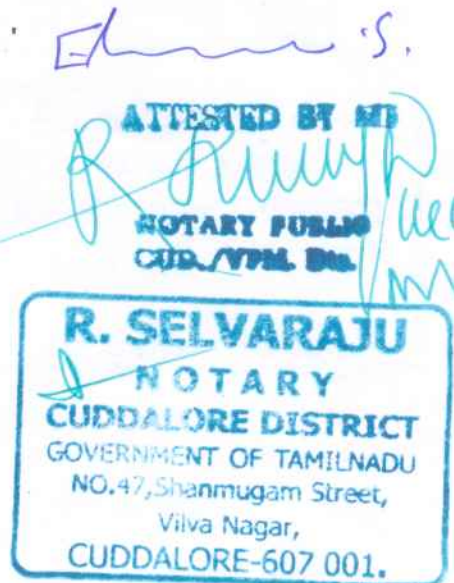 S.
ATTESTED BY ME
NOTARY PUBLIC
CUD./VPM. Dts.
R. SELVARAJU
NOTARY
CUDDALORE DISTRICT
GOVERNMENT OF TAMILNADU
NO.47,Shanmugam Street,
Vilva Nagar,
CUDDALORE-607 001.